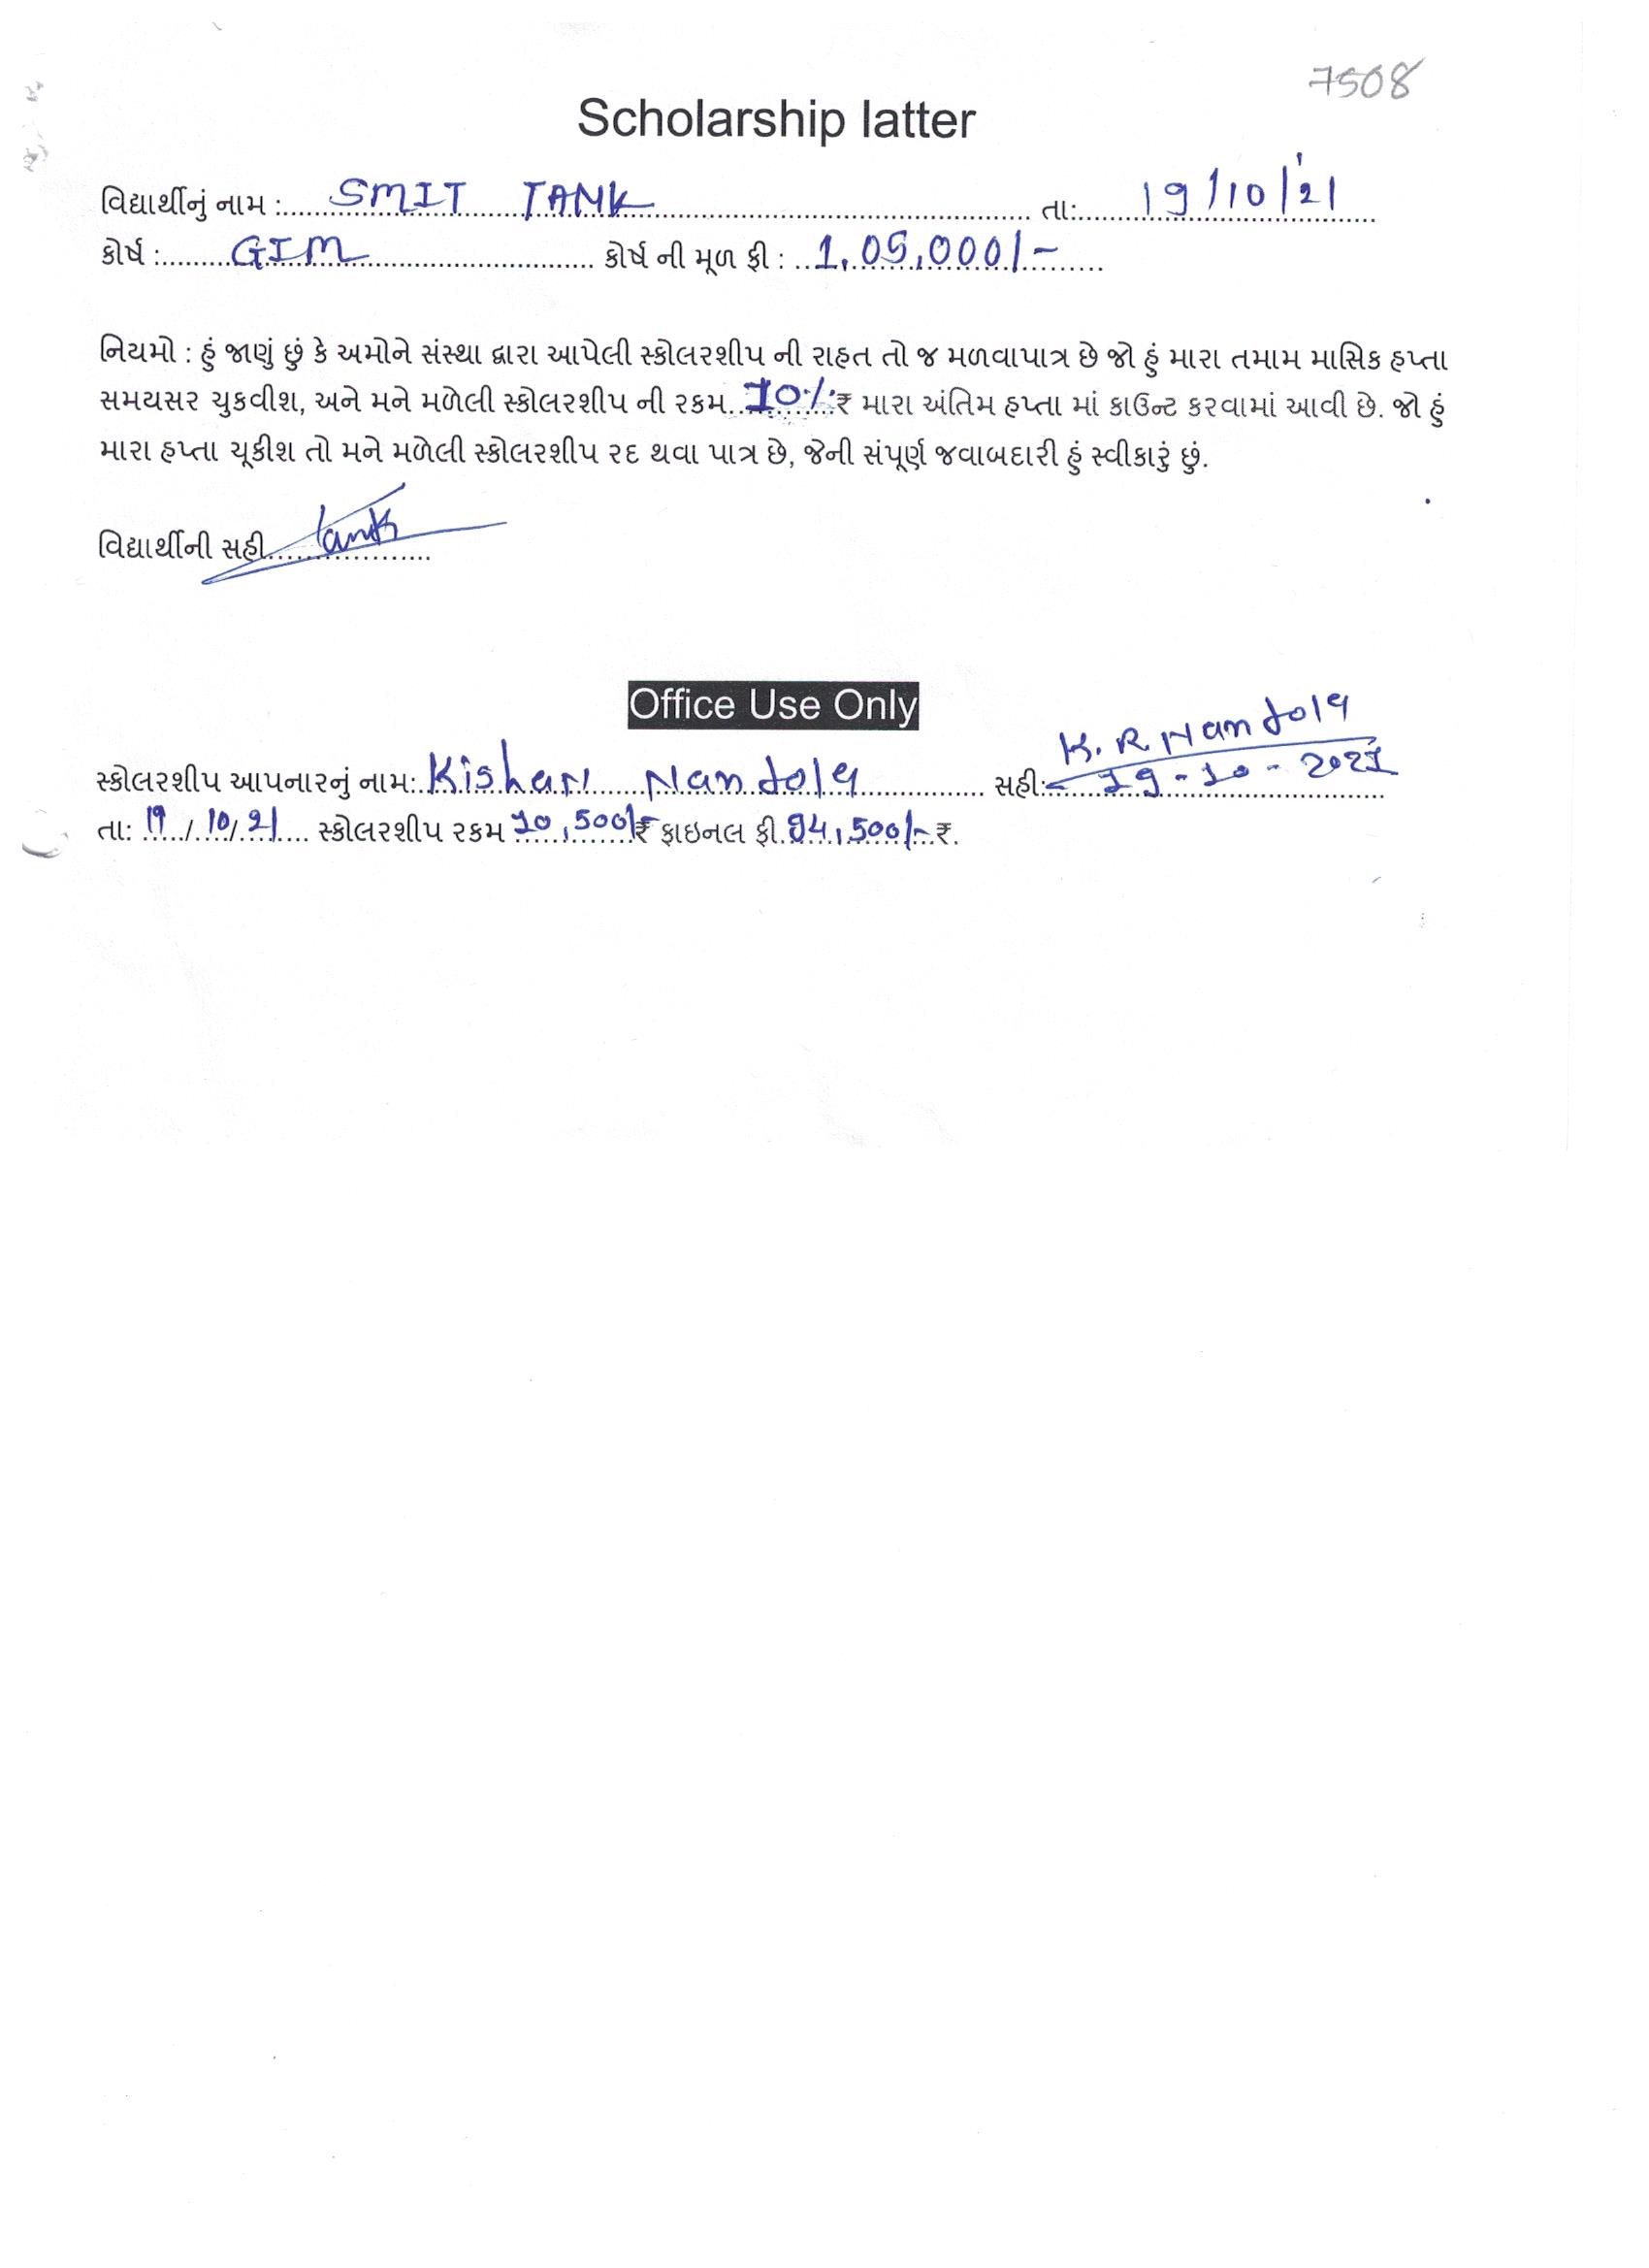 7508
Scholarship latter
વિદ્યાર્થીનું નામ : SMIT TANK તા: 19/10/21
કોર્ષ : GIM કોર્ષ ની મૂળ ફી : 1,05,000/-
નિયમો : હું જાણું છું કે અમોને સંસ્થા દ્વારા આપેલી સ્કોલરશીપ ની રાહત તો જ મળવાપાત્ર છે જો હું મારા તમામ માસિક હપ્તા
સમયસર ચુકવીશ, અને મને મળેલી સ્કોલરશીપ ની રકમ 10% ₹ મારા અંતિમ હપ્તા માં કાઉન્ટ કરવામાં આવી છે. જો હું
મારા હપ્તા ચૂકીશ તો મને મળેલી સ્કોલરશીપ રદ થવા પાત્ર છે, જેની સંપૂર્ણ જવાબદારી હું સ્વીકારું છું.
વિદ્યાર્થીની સહી Tank
Office Use Only
સ્કોલરશીપ આપનારનું નામ: Nandola સહી: K. R Nandola
19-10-2021
તા: 19/10/21 સ્કોલરશીપ રકમ 10,500/- ₹ ફાઇનલ ફી 94,500/- ₹.